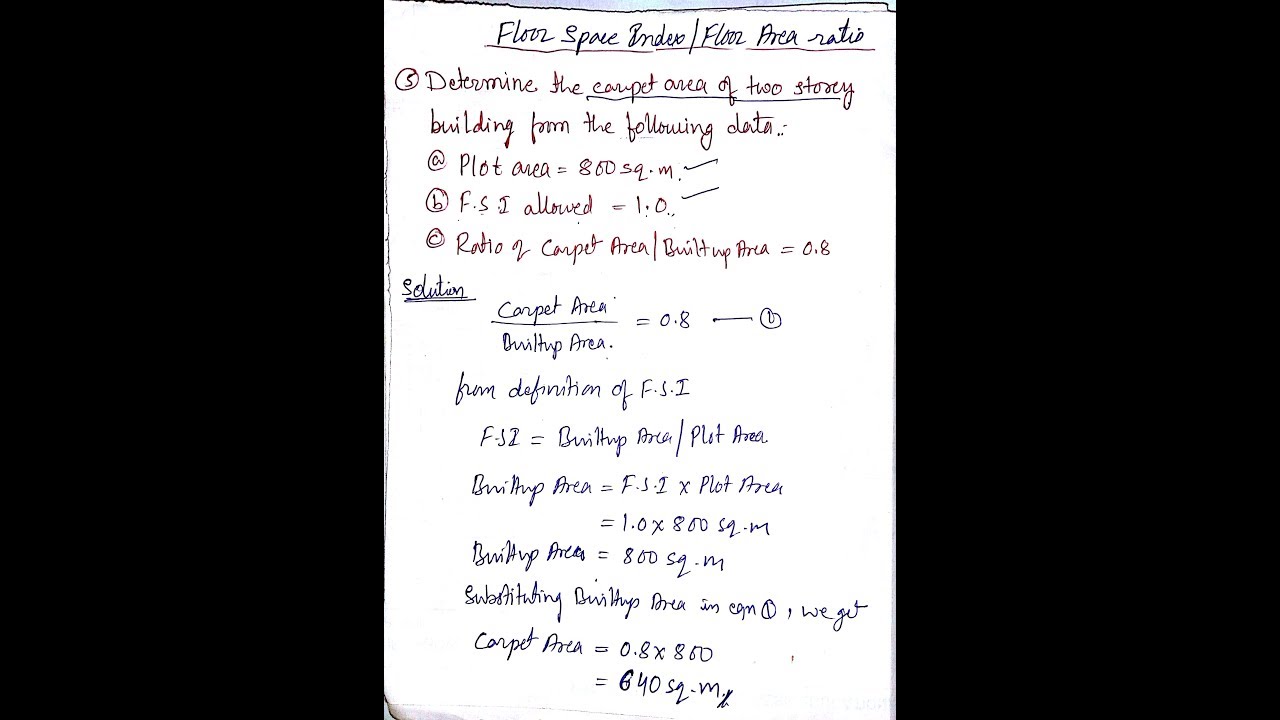 Floor Space Index/Floor Area ratio
⑤ Determine the carpet area of two storey
building from the following data:-
ⓐ Plot area = 800 sq.m.
ⓑ F.S.I allowed = 1.0.
ⓒ Ratio of Carpet Area/Builtup Area = 0.8
Solution
Carpet Area
Builtup Area. = 0.8 — ①
from definition of F.S.I
F.S.I = Builtup Area/Plot Area
Builtup Area = F.S.I x Plot Area
= 1.0 x 800 sq.m
Builtup Area = 800 sq.m
Substituting Builtup Area in eqn ①, we get
Carpet Area = 0.8 x 800
= 640 sq.m